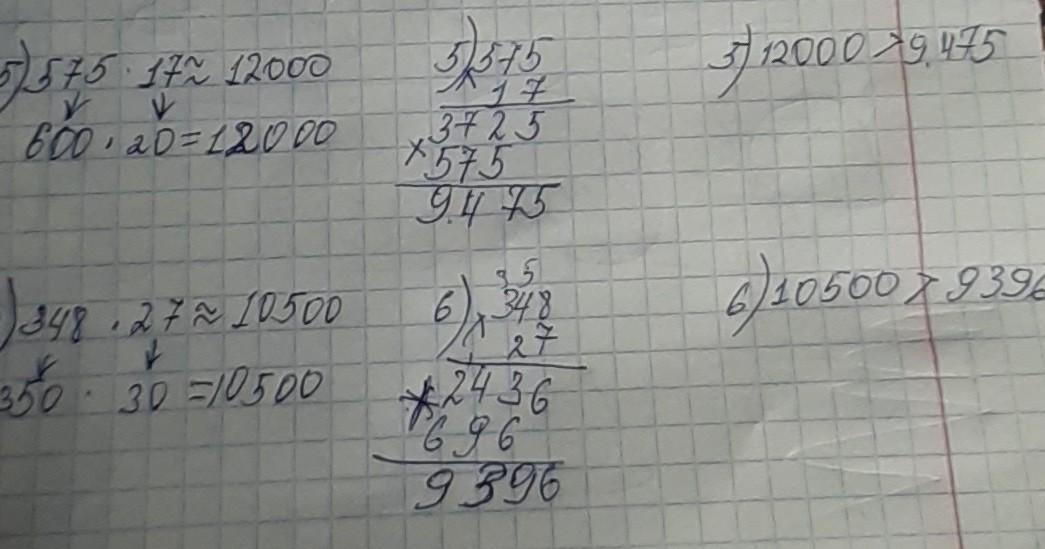 5) 575 · 17 ≈ 12000
600 · 20 = 12000
5) 575
× 17
3725
× 575
9.475
5) 12000 > 9.475
) 348 · 27 ≈ 10500
350 · 30 = 10500
3 5
6) × 348
27
2436
× 696
9396
6) 10500 > 9396